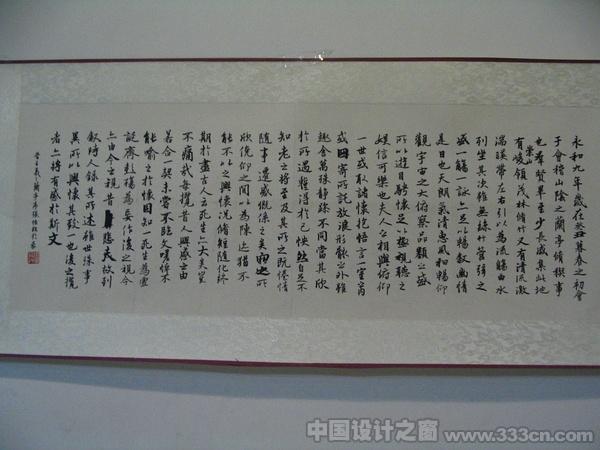 永和九年歲在癸丑暮春之初會
于會稽山陰之蘭亭脩稧事
也群賢畢至少長咸集此地
有崇山峻領茂林脩竹又有清流激
湍暎帶左右引以為流觴曲水
列坐其次雖無絲竹管弦之
盛一觴一詠亦足以暢敘幽情
是日也天朗氣清惠風和暢仰
觀宇宙之大俯察品類之盛
所以遊目騁懷足以極視聽之
娛信可樂也夫人之相與俯仰
一世或取諸懷抱悟言一室之內
或因寄所託放浪形骸之外雖
趣舍萬殊靜躁不同當其欣
於所遇蹔得於己怏然自足不
知老之將至及其所之既惓情
隨事遷感慨係之矣向之所
欣俛仰之間以為陳迹猶不
能不以之興懷況脩短隨化終
期於盡古人云死生亦大矣豈
不痛哉每攬昔人興感之由
若合一契未嘗不臨文嗟悼不
能喻之於懷固知一死生為虛
誕齊彭殤為妄作後之視今
亦由今之視昔悲夫故列
敘時人錄其所述雖世殊事
異所以興懷其致一也後之攬
者亦將有感於斯文
晉王羲之蘭亭序
中国设计之窗 www.333cn.com